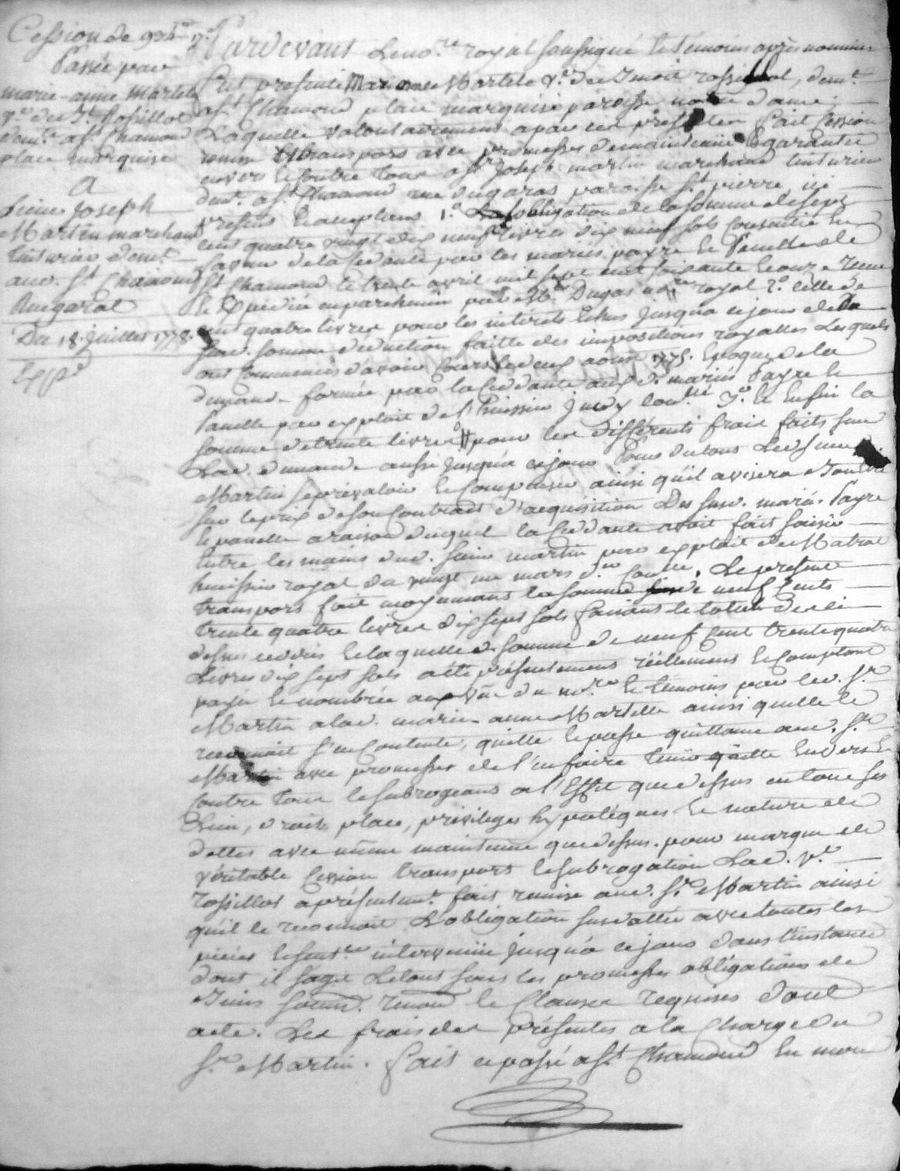 Cession de 934# 17s
Passée par
marie-anne Martel
ve de Jt Rosillot
demt a St Chamond
place marquise
A
Sieur Joseph
Martin marchand
teinturier demt
aud. St Chamond
Rue garat
Du 18 Juillet 1778
Expé
Pardevant le nore royal soussigné et témoins après nommés
fut presente Marianne Martel ve de Benoit rosillot, demt
a St Chamond place marquise paroisse notre dame,
Laquelle volontairement a par ces presentes fait Cession
remise et transport avec promesses de maintenir et garantir
envers et contre tous a Sr Joseph martin marchand teinturier
demt a St Chamond rue du garas paroisse St pierre ici
present et acceptant 1o L'obligation de la somme de sept
cent quatre vingt dix neuf livres dix neuf sols consentie en
faveur de la cedante par les mariés payre et Panelle de
St Chamond le trente avril mil sept cent soixante et onze
et Expédiée en parchemin par Me Dugas nore royal 2o celle de
cent quatre livres pour les interets Echus jusqua ce jour de la
susd. somme déduction faitte des impositions royalles Lesquels
ont commencés d'avoir cours le deux aoust 1775 Epoque de la
demande formée par la cedante auxd. mariés Payre et
Panelle par exploit de l'huissier 3o et Enfin la
somme de trente livres pour les différents frais faits sur
lad. demande aussi jusqu'a ce jour Pour du tout led. Sieur
Martin se prevaloir et compenser ainsi quil avisera
sur le prix de son Contrat d'acquisition Des susd. mariés Payre
et panelle a raison duquel la Cedante avoit fait saisie
Entre les mains dud. Sieur martin par exploit de Matrat
huissier royal du vingt un mars dr Le présent
transport fait moyennant la somme de neuf Cents
trente quatre livres dix sept sols faisant le total de celles
dessus cedées et laquelle de. somme de neuf Cent trente quatre
Livres dix sept sols a été présentement réellement et comptant
payée et nombrée aux vue du nore et temoins par led. Sr
Martin a lad. marie anne Martelle ainsi quelle le
reconnoit s'en contente, quelle en passe quittance aud. Sr
Martin avec promesses de l'en faire tenir quitte Envers et
Contre tous le subrogeant a l'Effet que dessus en tous ses
Lieu, droits, place, privileges hypoteques et nature de
dettes avec même maintenue que dessus. pour marque de
véritable Cession transport et subrogation Lad. ve
rosillot a présentemt fait remise aud. Sr Martin ainsi
quil le reconnoit L'obligation susdattée avec toutes les
pieces et sentce intervenüe jusqu'a ce jour dans l'instance
dont il sagit Le tout sous les promesses obligations de
biens soumn renonn et Clauses requises dont
acte. Les frais des présentes a la Charge du
Sr Martin. fait et passé a St Chamond En mon